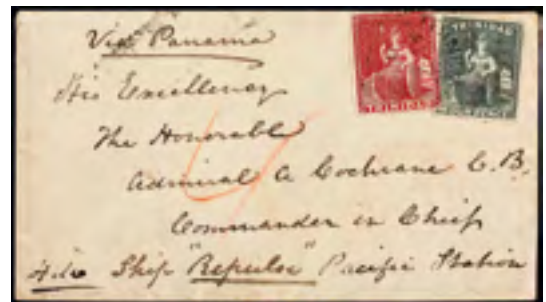 Via Panama
His Excellency
The Honorable
Admiral A Cochrane C.B.
Commander in Chief
H.M. Ship "Repulse" Pacific Station
TRINIDAD
TRINIDAD